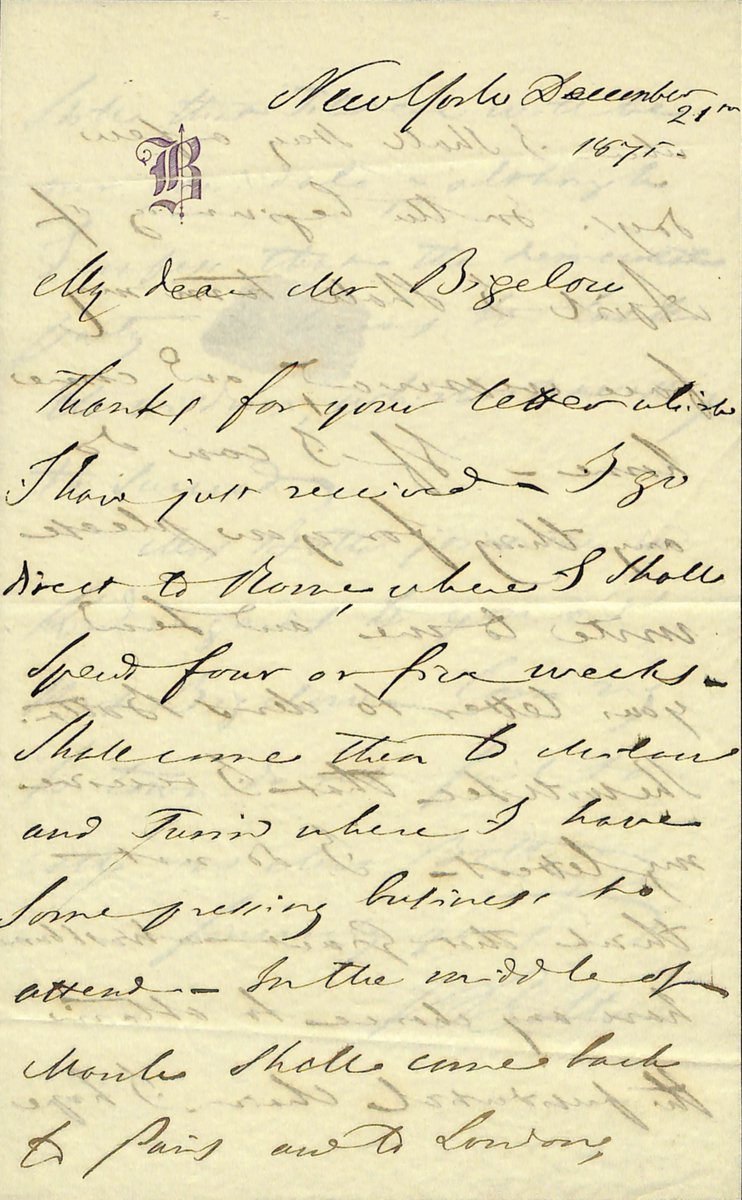 New York December
21st
1875
B
My dear Mr Bigelow
Thanks for your letter which
I have just received - I go
direct to Rome, where I shall
spend four or five weeks -
Shall come then to Milan
and Turin where I have
some pressing business to
attend - In the middle of
March shall come back
to Paris and to London,